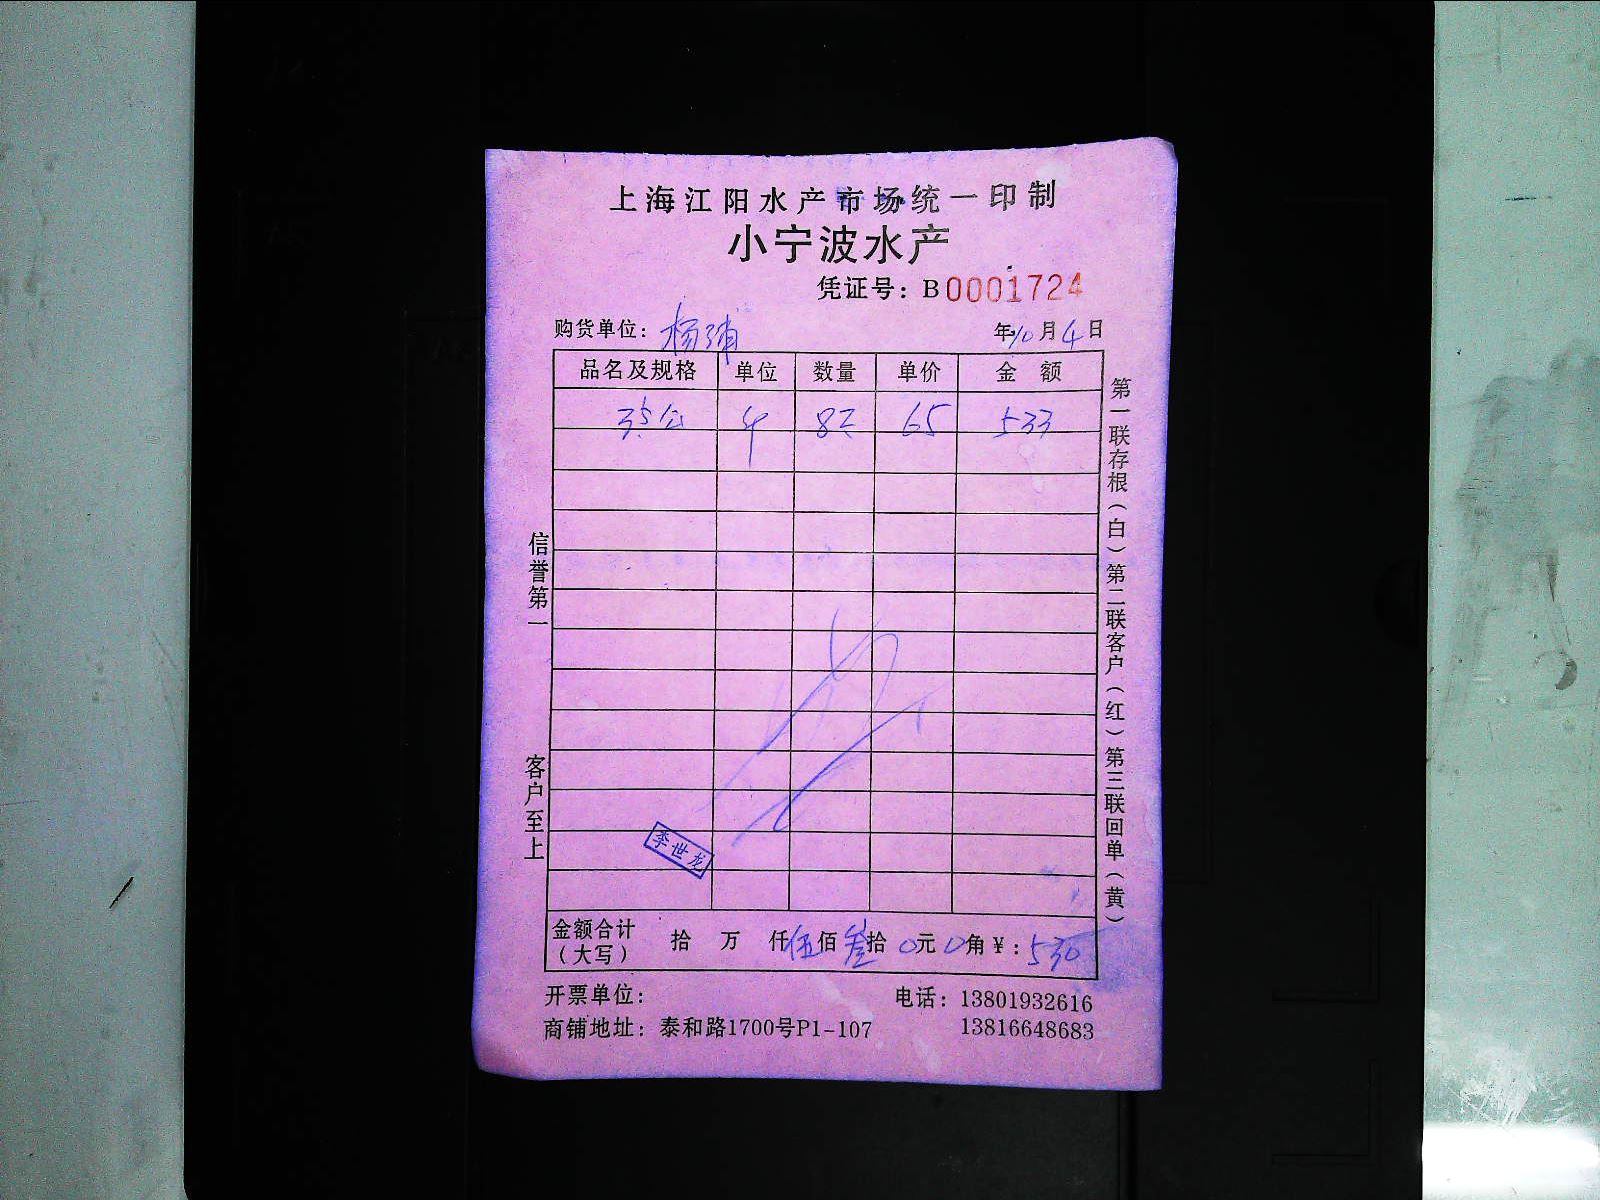 上海江阳水产市场统一印制
小宁波水产
凭证号：B0001724
购货单位：杨浦 年10月4日
品名及规格 单位 数量 单价 金额
斤 65 533
第一联存根（白）第二联客户（红）第三联回单（黄）
信誉第一
客户至上
李世龙
金额合计（大写） 拾 万 仟伍佰叁拾0元0角¥：530
开票单位： 电话：13801932616
商铺地址：泰和路1700号P1-107 13816648683